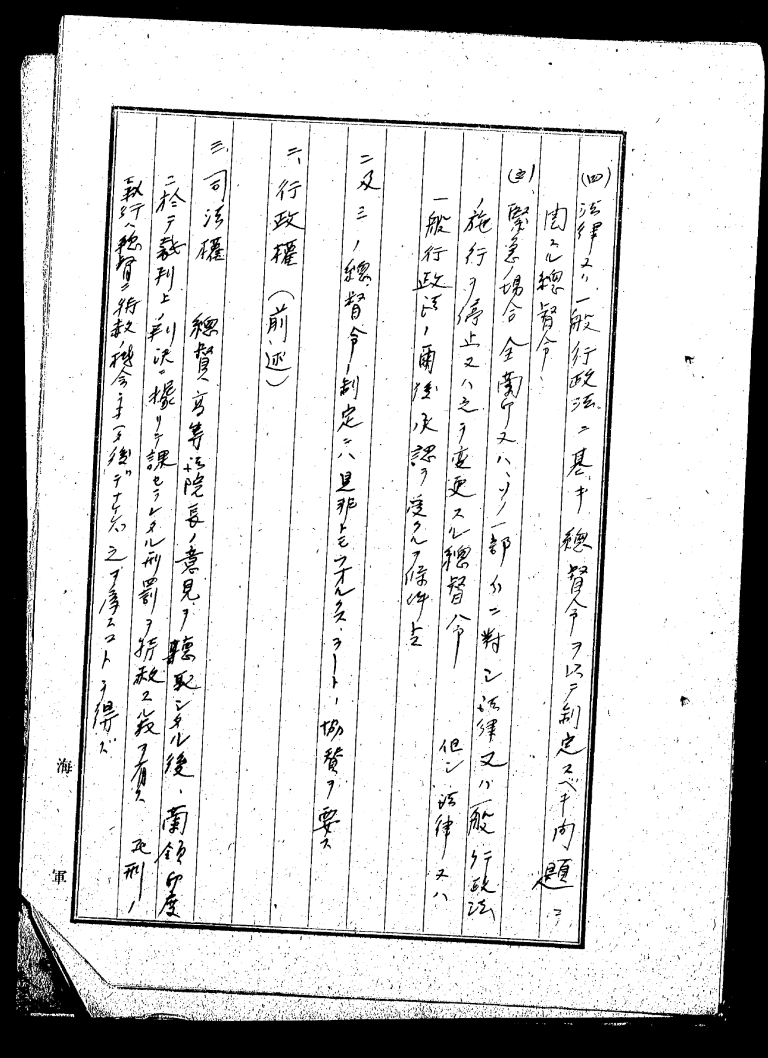 (四)法律又ハ一般行政法ニ基キ總督令ヲ以テ制定スベキ問題ニ
関スル總督令、
(五)緊急ノ場合全蘭印又ハソノ一部分ニ對シ法律又ハ一般行政法
ノ施行ヲ停止又ハ之ヲ変更スル總督令 但シ法律又ハ
一般行政法ノ爾後承認ヲ受クルヲ條件トス
二及三ノ總督令ノ制定ニハ是非トモフオルクス・ラートノ協賛ヲ要ス
二、行政權(前述)
三、司法權
總督ハ高等法院長ノ意見ヲ聽取シタル後、蘭領印度
ニ於テ裁判上ノ判決ニ據リテ課セラレタル刑罰ヲ特赦スル权ヲ有ス 死刑ノ
執行ハ總督ニ特赦ノ機会ヲ後デナケレバ之ヲ為スコトヲ得ズ
海軍